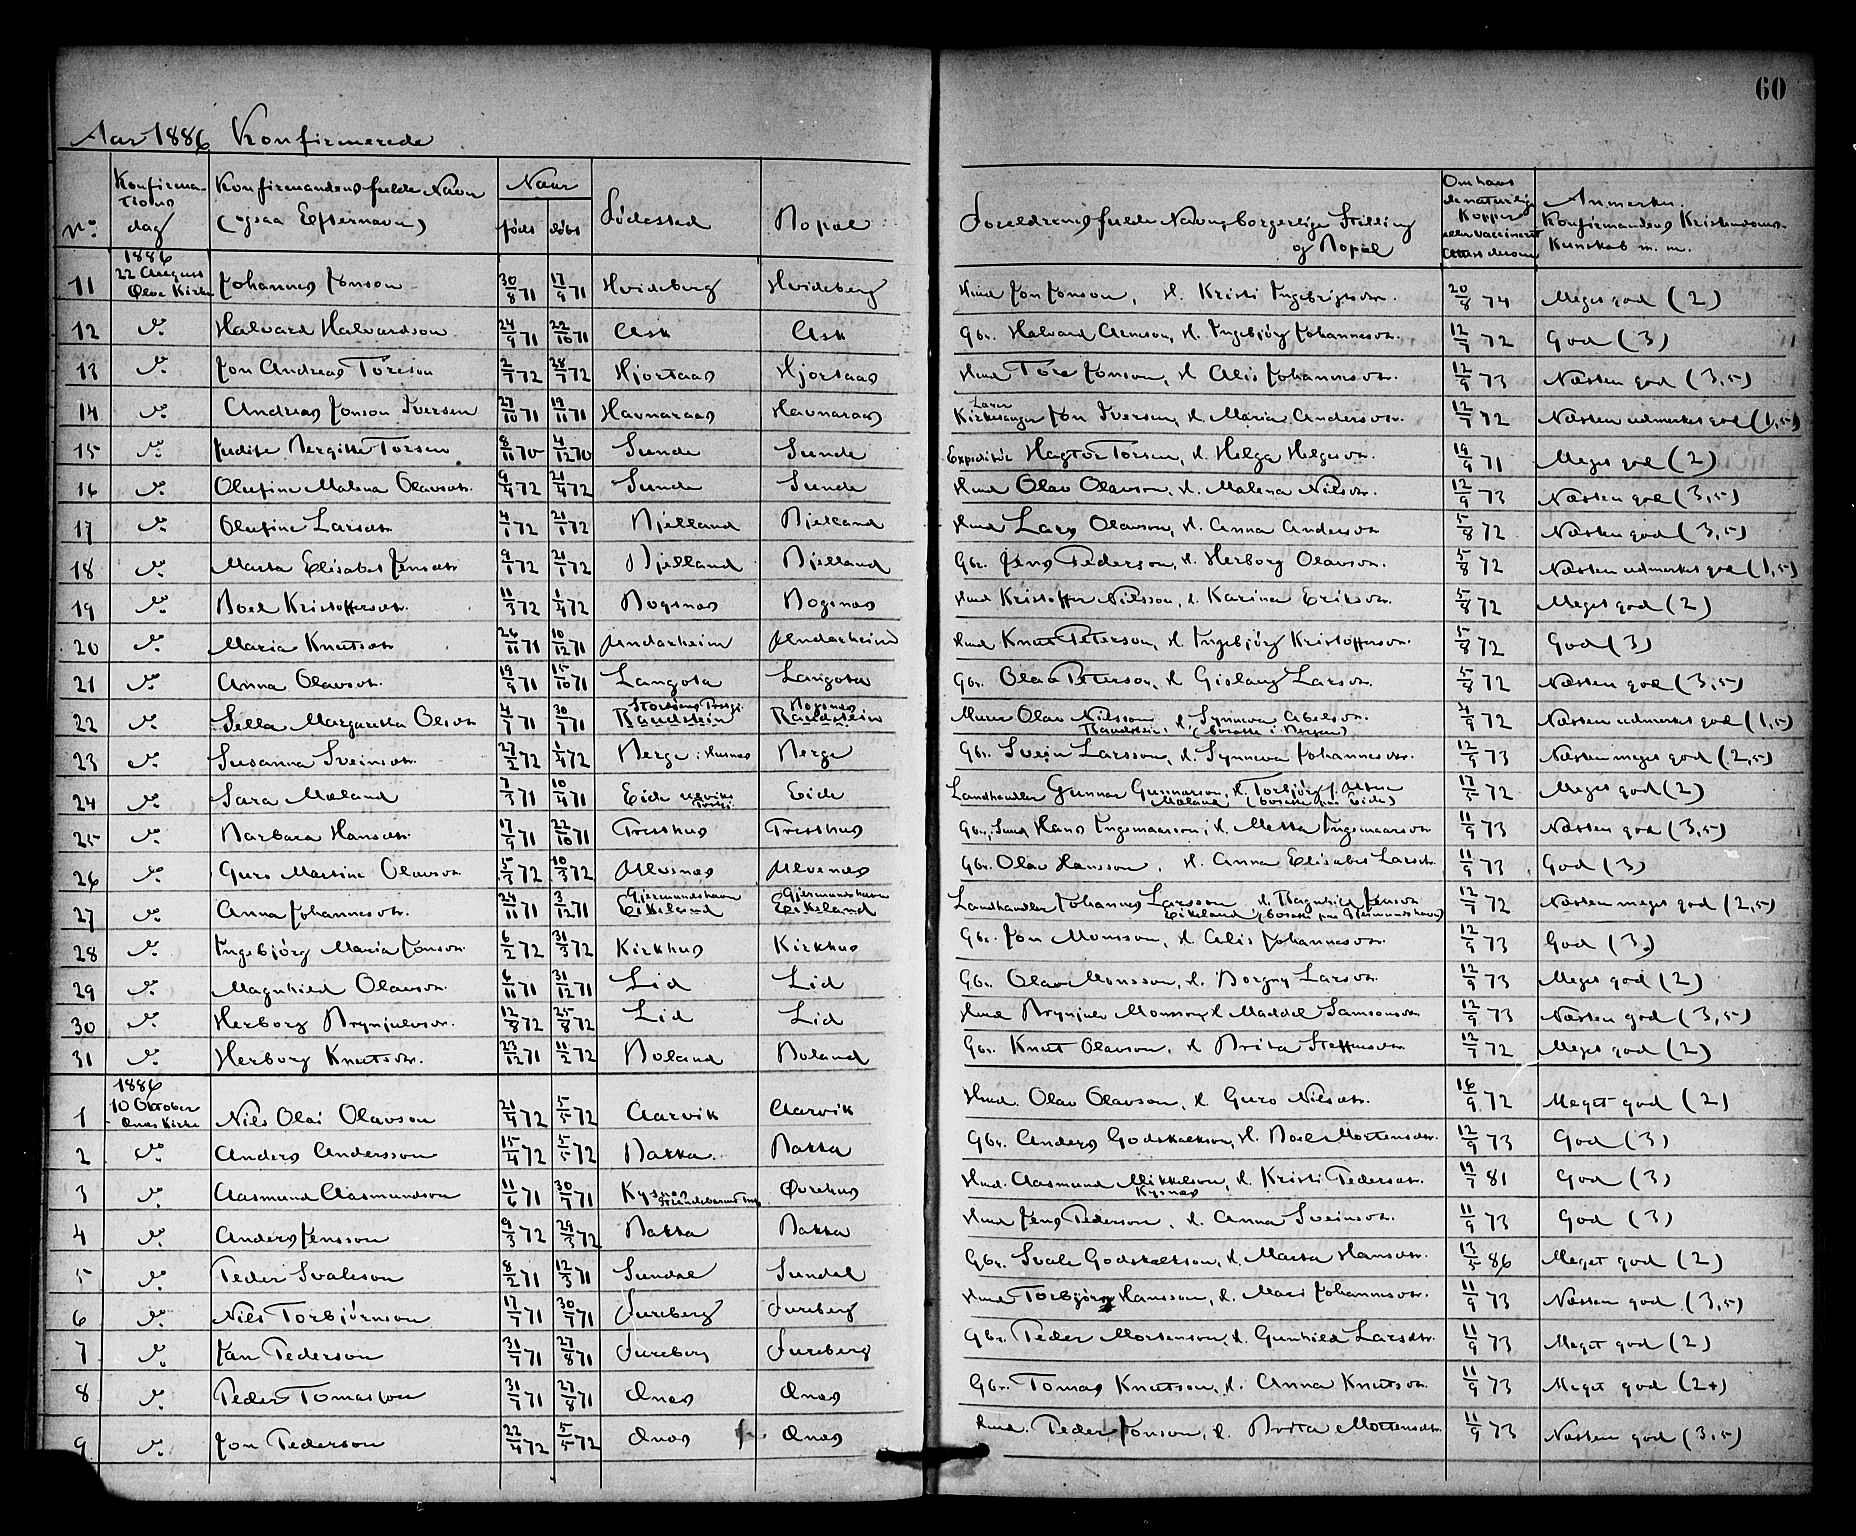 60
Aar 1886 Konfirmerede
No. Konfirmationsdag Konfirmandens fulde Navn (ogsaa Efternavn) Naar født døbt Fødested Bopæl Forældrenes fulde Navne, borgerlige Stilling og Bopæl Om havt de naturlige Kopper eller vaccineret Anmerkn. Konfirmandens Kristendoms-Kunskab m. m.
11 1886 22 August Ølve Kirke Johannes Jonson 30/8 71 17/9 71 Hvideberg Hvideberg Hmd Jon Jonson, H. Kristi Ingebrigtsdtr. 20/8 74 Meget god (2)
12 do. Halvard Halvardson 24/9 71 22/10 71 Ask Ask Gbr. Halvard Arneson, H. Ingebjörg Johannesdtr. 12/9 72 God (3)
13 do. Jon Andreas Töreson 2/7 72 28/7 72 Hjortaas Hjortaas Hmd Töre Jonson, H Alis Johannesdtr. 12/9 73 Næsten god (3,5)
14 do. Andreas Jonson Iversen 27/10 71 19/11 71 Havnaraas Havnaraas Lærer Kirkesanger Jon Iversen, H. Maria Andersdtr. 12/7 72 Næsten udmerket god (1,5)
15 do. Judite Bergitte Torsen 8/11 70 4/12 70 Sunde Sunde Expeditör Hagtor Torsen, H. Helga Helgesdtr. 19/9 71 Meget god (2)
16 do. Olufine Malena Olavsdtr. 9/4 72 21/4 72 Sunde Sunde Hmd Olav Olavson, H. Malena Nilsdtr. 12/9 73 Næsten god (3,5)
17 do. Olufine Larsdtr. 4/1 72 21/1 72 Bjelland Bjelland Hmd Lars Olavson, H. Anna Andersdtr 5/8 72 Næsten god (3,5)
18 do. Marta Elisabet Jensdtr. 9/1 72 21/1 72 Bjelland Bjelland Gbr. Jens Pederson, H. Herborg Olavsdtr. 5/8 72 Næsten udmerket god (1,5)
19 do. Boel Kristoffersdtr. 11/3 72 1/4 72 Bogsnes Bogsnes Hmd Kristoffer Nilsson, H. Karina Eriksdtr. 5/8 72 Meget god (2)
20 do. Maria Knutsdtr 26/11 71 10/12 71 Undarheim Undarheim Hmd Knut Peterson, H Ingebjörg Kristoffersdtr. 5/8 72 God (3)
21 do. Anna Olavsdtr. 19/9 71 15/10 71 Langota Langota Gbr. Olav Peterson, H Gislaug Larsdtr. 5/8 72 Næsten god (3,5)
22 do. Sella Margaretta Olsdtr 4/7 71 30/7 71 Raudstein Bogsnes Raudstein Murer Olav Nilsson Raudstein, H. Synneva Abelsdtr. (bosatte i Bergen) 4/9 72 Næsten udmerket god (1,5)
23 do. Susanna Sveinsdtr. 27/2 72 1/4 72 Berge i Husnes Berge Gbr. Svein Larsson, H. Synneva Johannesdtr. 12/9 73 Næsten meget god (2,5)
24 do. Sara Mæland 7/3 71 10/4 71 Eide Eide Landhandler Gunnar Gunnarson, Mæland (bosatte paa Eide) 17/5 72 Meget god (2)
25 do. Barbara Hansdtr. 17/9 71 22/10 71 Tresthus Tresthus Gbr. Hans Ingemaarson, H. Metta Ingemaarsdtr 11/9 73 Næsten god (3,5)
26 do. Guro Martine Olavsdtr 5/3 72 10/3 72 Ulvsnes Ulvsnes Gbr. Olav Hansson, H. Anna Elisabet Larsdtr. 11/9 73 God (3)
27 do. Anna Johannesdtr. 24/11 71 3/12 71 Gjermundshavn Eikeland Gjermundshavn Eikeland Landhandler Johannes Larsson Eikeland, H. Ragnhild Jensdtr (bosatte paa Gjermundshavn) 12/7 72 Næsten meget god (2,5)
28 do. Ingebjörg Maria Jonsdtr. 6/2 72 31/3 72 Kirkhus Kirkhus Gbr. Jon Monsson, H Alis Johannesdtr. 12/9 73 God (3)
29 do. Magnhild Olavsdtr. 6/11 71 31/12 71 Lid Lid Gbr. Olav Monsson, H. Borgny Larsdtr. 12/9 73 Meget god (2)
30 do. Herborg Brynjulvsdtr. 12/8 72 25/8 72 Lid Lid Hmd Brynjulv Monsson, H Maddel Samsonsdtr 12/9 73 Næsten god (3,5)
31 do. Herborg Knutsdtr. 23/12 71 11/2 72 Boland Boland Gbr. Knut Olavson, H Brita Steffensdtr 12/7 72 Meget god (2)
1 1886 10 Oktober Ænes Kirke Nils Olai Olavson 21/4 72 5/5 72 Aarvik Aarvik Hmd. Olav Olavson, H. Guro Nilsdtr. 16/9 72 Meget god (2)
2 do. Anders Andersson 15/4 72 5/5 72 Bakka Bakka Gbr. Anders Godskalkson, H. Boel Mortensdtr. 12/9 73 God (3)
3 do. Aasmund Aasmundson 11/6 71 30/7 71 Kysnes Strandebarm Øvrehus Hmd. Aasmund Mikkelson Kysnes, H. Kristi Pedersdtr. 19/7 81 God (3)
4 do. Anders Jensson 9/3 72 29/3 72 Bakka Bakka Hmd Jens Pederson, H. Anna Sveinsdtr. 11/9 73 God (3)
5 do. Peder Svaleson 8/2 71 12/3 71 Sundal Sundal Gbr. Svale Godskalkson, H. Marta Hansdtr. 13/5 86 Meget god (2)
6 do. Nils Torbjörnson 17/7 71 30/7 71 Fureberg Fureberg Hmd Torbjörn Hansson, H. Mari Johannesdtr. 11/9 73 Næsten god (3,5)
7 do. Jan Pederson 31/7 71 27/8 71 Fureberg Fureberg Gbr. Peder Mortenson, H. Gunhild Larsdtr. 11/9 73 Meget god (2)
8 do. Peder Tomasson 31/7 71 27/8 71 Ænes Ænes Gbr. Tomas Knutson, H. Anna Knutsdtr. 11/9 73 Meget god (2+)
9 do. Jon Pederson 22/4 72 5/5 72 Ænes Ænes Hmd. Peder Jonson, H. Brita Mortensdtr. 11/9 73 Næsten god (3,5)